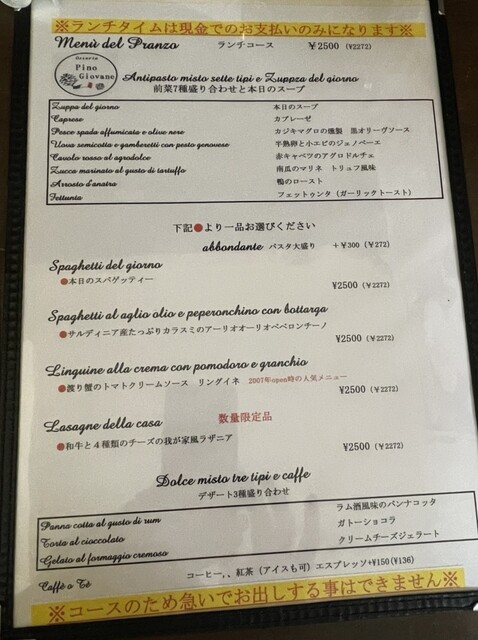 ※ランチタイムは現金でのお支払いのみになります※
Menù del Pranzo ランチコース ￥2500 (￥2272)
Osteria
Pino
Giovane
Antipasto misto sette tipi e Zuppza del giorno
前菜7種盛り合わせと本日のスープ
Zuppa del giorno 本日のスープ
Caprese カプレーゼ
Pesce spada affumicata e olive nere カジキマグロの燻製 黒オリーヴソース
Uova semicotta e gamberetti con pesto genovese 半熟卵と小エビのジェノベーゼ
Cavolo rosso al agrodolce 赤キャベツのアグロドルチェ
Zucca marinato al gusto di tartuffo 南瓜のマリネ トリュフ風味
Arrosto d'anatra 鴨のロースト
Fettunta フェットゥンタ（ガーリックトースト）
下記●より一品お選びください
abbondante パスタ大盛り ＋￥300 (￥272)
Spaghetti del giorno
●本日のスパゲッティー
¥2500（￥2272)
Spaghetti al aglio olio e peperonchino con bottarga
●サルディニア産たっぷりカラスミのアーリオオーリオペペロンチーノ
¥2500（￥2272)
Linguine alla crema con pomodoro e granchio
●渡り蟹のトマトクリームソース リングイネ 2007年open時の人気メニュー
¥2500（￥2272)
Lasagne della casa 数量限定品
●和牛と４種類のチーズの我が家風ラザニア
¥2500（￥2272)
Dolce misto tre tipi e caffe
デザート3種盛り合わせ
Panna cotta al gusto di rum ラム酒風味のパンナコッタ
Torta al cioccolato ガトーショコラ
Gelato al formaggio cremoso クリームチーズジェラート
Caffè o Tè コーヒー,、紅茶（アイスも可）エスプレッソ+¥150(¥136)
※コースのため急いでお出しする事はできません※